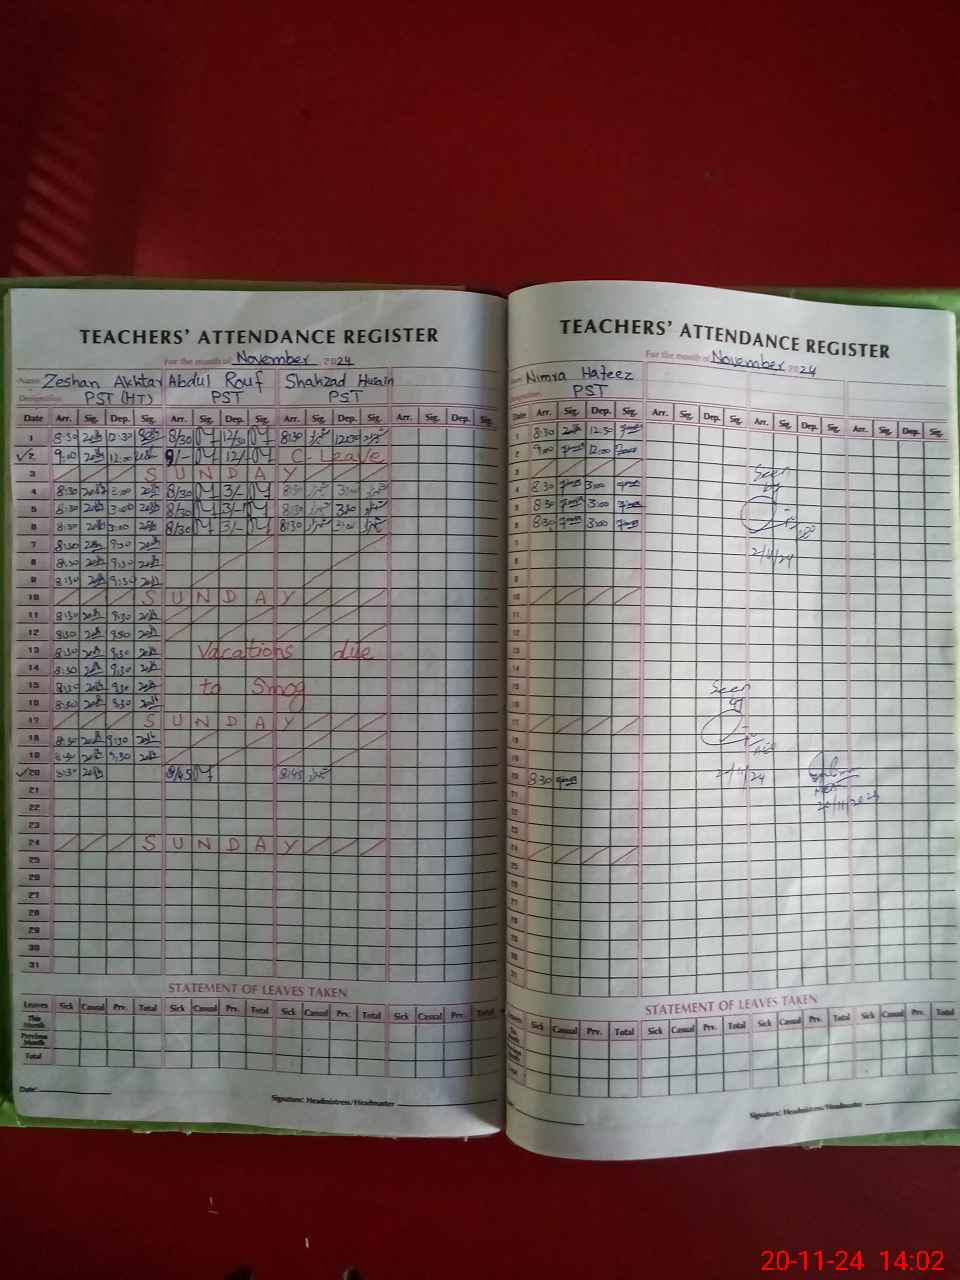 TEACHERS' ATTENDANCE REGISTER
For the month of November 2024
Name Zeshan Akhtar Abdul Rouf Shahzad Husain
Designation PST (HT) PST PST
Date Arr. Sig. Dep. Sig. Arr. Sig. Dep. Sig. Arr. Sig. Dep. Sig. Arr. Sig. Dep. Sig.
1 8:30 12:30 8/30 12/30 8:30 12:30
2 9:00 12:00 9/- 12/- C-Leave
3 SUNDAY
4 8:30 3:00 8/30 3/- 8:30 3:00
5 8:30 3:00 8/30 3/- 8:30 3:00
6 8:30 3:00 8/30 3/- 8:30 3:00
7 8:30 9:30
8 8:30 9:30
9 8:30 9:30
10 SUNDAY
11 8:30 9:30
12 8:30
13 8:30 Vacations due
14 8:30 9:30
15 8:30 9:30 to Smog
16 8:30
17 SUNDAY
18 8:30 9:30
19 8:30 9:30
20 8:30 8/45 8:45
21
22
23
24 SUNDAY
25
26
27
28
29
30
31
STATEMENT OF LEAVES TAKEN
Leaves Sick Casual Prv. Total Sick Casual Prv. Total Sick Casual Prv. Total Sick Casual Prv. Total
This Month
Previous Month
Total
Date:
Signature: Headmistress/Headmaster
TEACHERS' ATTENDANCE REGISTER
For the month of November 2024
Nimra Hafeez
PST
Date Arr. Sig. Dep. Sig. Arr. Sig. Dep. Sig. Arr. Sig. Dep. Sig. Arr. Sig. Dep. Sig.
1 8:30 12:30
2 9:00 12:00
3 Seen
4 8:30 3:00 by
5 8:30 3:00
6 8:30 3:00 AEO
7
8 2/11/24
9
10
11
12
13
14
15 Seen
16 by
17
18
19 AEO
20 8:30
21 20/11/2024
22
23
24
25
26
27
28
29
30
31
STATEMENT OF LEAVES TAKEN
Sick Casual Prv. Total Sick Casual Prv. Total Sick Casual Prv. Total Sick Casual Prv. Total
Signature: Headmistress/Headmaster
20-11-24 14:02